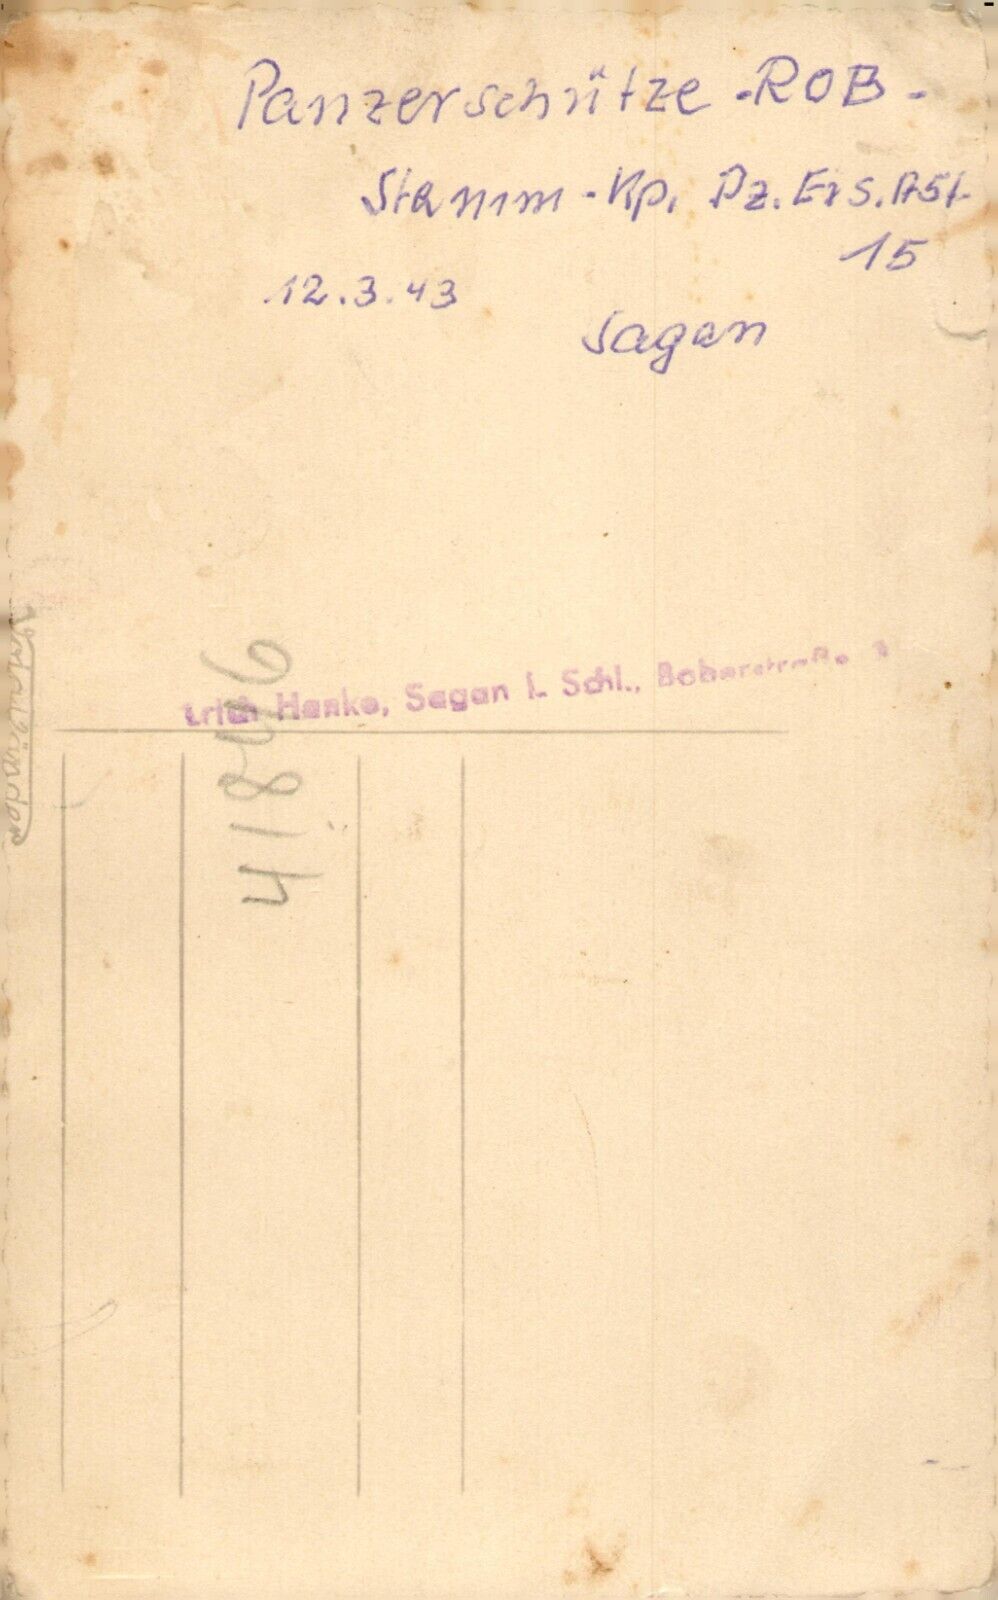 Panzerschütze -ROB-
Stamm-Kp. Pz. Ers. Abt.
15
12.3.43
Sagan
Erich Hanke, Sagan i. Schl., Boberstraße
41846